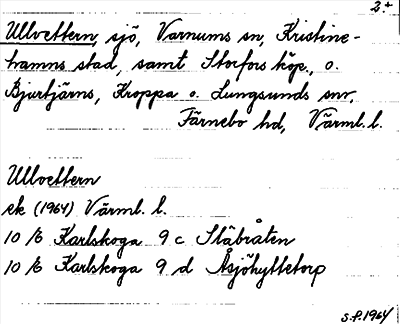 2+
Ullvettern, sjö, Varnums sn, Kristine-
hamns stad, samt Storfors köp., o.
Bjurtjärns, Kroppa o. Lungsunds snr,
Färnebo hd, Värml. l.
Ullvettern
ek (1964) Värml. l.
10/6 Karlskoga 9 c Stabråten
10/6 Karlskoga 9 d Åsjöhyttetorp
S.P. 1964